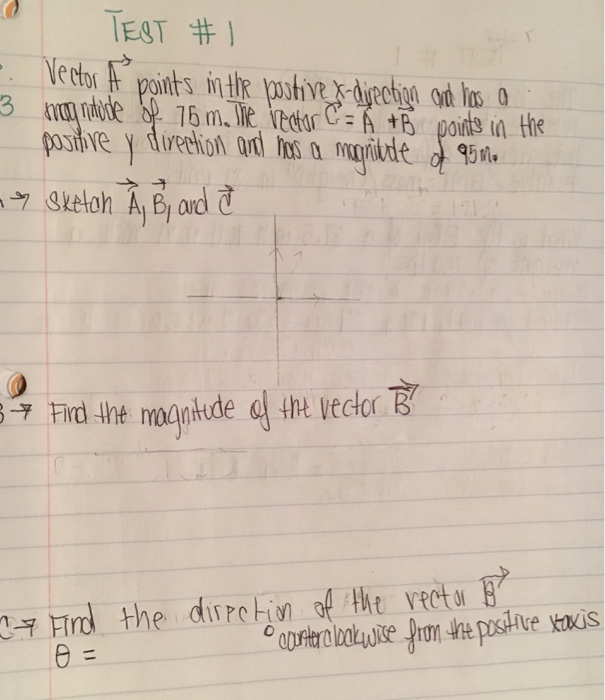 TEST # 1
Vector A⃗ points in the postive x-direction and has a
3 magnitude of 75 m. The vector C⃗ = A⃗ + B⃗ points in the
positive y direction and has a magnitude of 95m.
→ Sketch A⃗, B⃗, and C⃗
B → Find the magnitude of the vector B⃗
C → Find the direction of the vector B⃗
θ = ° counterclockwise from the positive x-axis